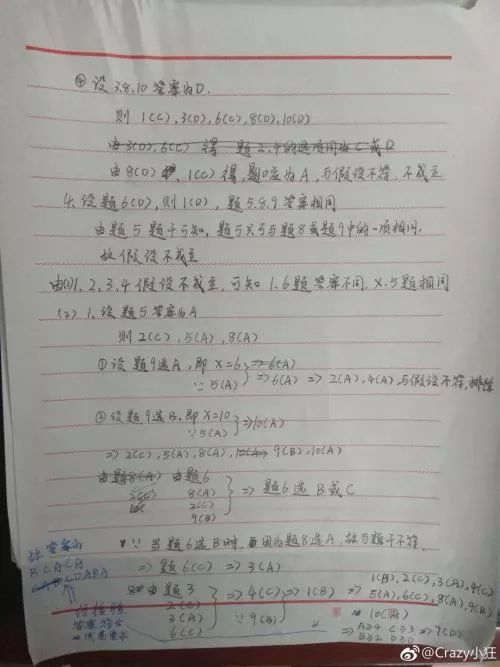 ④ 设 3.8.10 答案为D.
则 1(C), 3(D), 6(C), 8(D), 10(D)
由 3(D), 6(C) 得 题 2,4的选项同为 C 或 D
由 8(D) 1(C) 得, 题10应为 A, 与假设不符, 不成立
4. 设题6(D), 则1(D), 题5.8.9 答案相同
由题 5 题干可知, 题5只可与题8或题9中的一项相同,
故假设不成立
由(1)1.2.3.4 假设不成立, 可知 1.6题答案不同, X.5题相同
(2) 1. 设题5答案为A
则 2(C), 5(A), 8(A)
① 设题9选A, 即 X=6 ⇒ 6(A)
∵ 5(A) ⇒ 6(A) ⇒ 2(A), 4(A) 与假设不符, 排除
② 设题9选B, 即 X=10
∵ 5(A) ⇒ 10(A)
⇒ 2(C), 5(A), 8(A), 10(A) 9(B), 10(A)
由题8(A) 由题6
8(A)
2(C)
9(B)
⇒ 题6选 B 或 C
∵ 当题6选B时, 因为题8选A, 故与题干不符,
⇒ 题6(C) ⇒ 3(A)
由题3
2(C)
3(A)
6(C)
⇒ 4(C)
∵ 9(B)
⇒ 1(B) ⇒
1(B), 2(C), 3(A), 4(C)
5(A), 6(C), 8(A), 9(B)
10(A)
⇒ A≥4 C≥3 ⇒ 7(D)
B≥2 D≥0
答案为
BCACA
CDABA
经检验
答案符合
@Crazy小狂